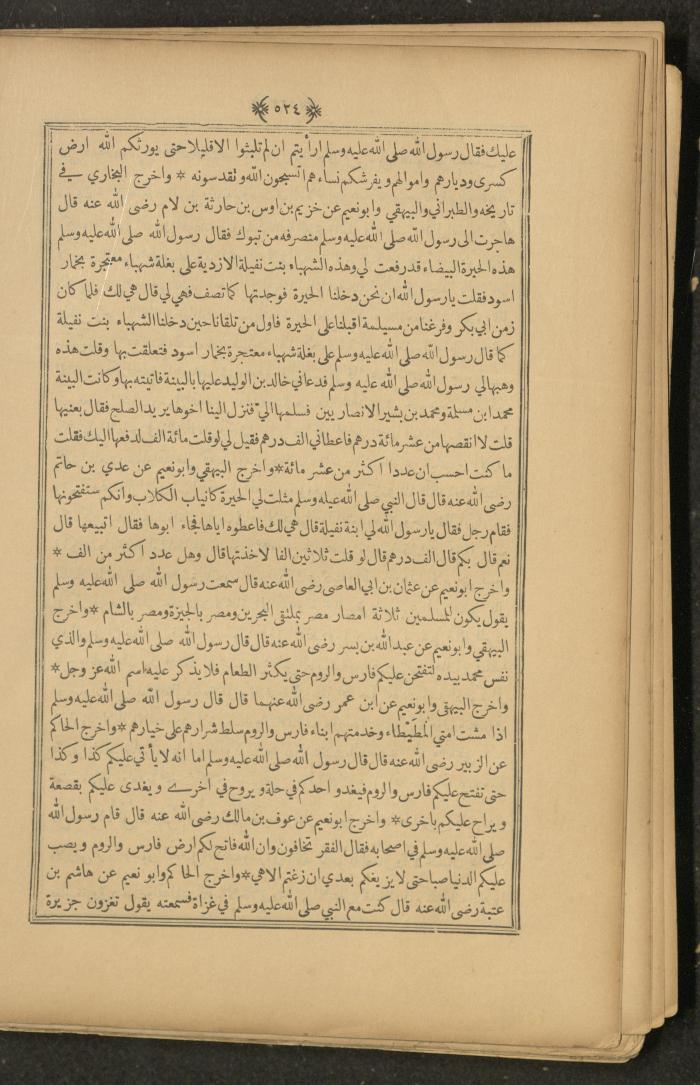 ﴿ ٥٢٤ ﴾
عليك فقال رسول الله صلى الله عليه وسلم ارأيتم ان لم تلبثوا الا قليلا حتى يورثكم الله ارض
كسرى وديارهم واموالهم ويفرشكم نساءهم اتسبحون الله وتقدسونه * واخرج البخاري في
تاريخه والطبراني والبيهقي وابونعيم عن خزيم بن اوس بن حارثة بن لام رضى الله عنه قال
هاجرت الى رسول الله صلى الله عليه وسلم منصرفه من تبوك فقال رسول الله صلى الله عليه وسلم
هذه الحيرة البيضاء قد رفعت لي وهذه الشهباء بنت نفيلة الازدية على بغلة شهباء معتجرة بخمار
اسود فقلت يارسول الله ان نحن دخلنا الحيرة فوجدتها كما تصف فهي لي قال هي لك فلما كان
زمن ابي بكر وفرغنا من مسيلمة اقبلنا على الحيرة فاول من تلقانا حين دخلنا الشهباء بنت نفيلة
كما قال رسول الله صلى الله عليه وسلم على بغلة شهباء معتجرة بخمار اسود فتعلقت بها وقلت هذه
وهبها لي رسول الله صلى الله عليه وسلم فدعاني خالد بن الوليد عليها بالبينة فاتيته بها وكانت البينة
محمد ابن مسلمة ومحمد بن بشير الانصاريين فسلمها اليّ فنزل الينا اخوها يريد الصلح فقال بعنيها
قلت لا انقصها من عشر مائة درهم فاعطاني الف درهم فقيل لي لو قلت مائة الف لدفعها اليك فقلت
ما كنت احسب ان عددا اكثر من عشر مائة * واخرج البيهقي وابونعيم عن عدي بن حاتم
رضى الله عنه قال قال النبي صلى الله عليه وسلم مثلت لي الحيرة كانياب الكلاب وانكم ستفتحونها
فقام رجل فقال يارسول الله لي ابنة نفيلة قال هي لك فاعطوه اياها فجاء ابوها فقال اتبيعها قال
نعم قال بكم قال الف درهم قال لو قلت ثلاثين الفا لاخذتها قال وهل عدد اكثر من الف *
واخرج ابونعيم عن عثمان بن ابي العاصى رضى الله عنه قال سمعت رسول الله صلى الله عليه وسلم
يقول يكون للمسلمين ثلاثة امصار مصر بملتقى البحرين ومصر بالجيزة ومصر بالشام * واخرج
البيهقي وابونعيم عن عبدالله بن بسر رضى الله عنه قال قال رسول الله صلى الله عليه وسلم والذي
نفس محمد بيده لتفتحن عليكم فارس والروم حتى يكثر الطعام فلا يذكر عليه اسم الله عز وجل *
واخرج البيهقى وابونعيم عن ابن عمر رضى الله عنهما قال قال رسول الله صلى الله عليه وسلم
اذا مشت امتي المُطَيْطَاء وخدمتهم ابناء فارس والروم سلط شرارهم على خيارهم * واخرج الحاكم
عن الزبير رضى الله عنه قال قال رسول الله صلى الله عليه وسلم اما انه لا يأتي عليكم كذا وكذا
حتى تفتح عليكم فارس والروم فيغدو احدكم في حلة ويروح في اخرى ويغدى عليكم بقصعة
ويراح عليكم باخرى * واخرج ابونعيم عن عوف بن مالك رضى الله عنه قال قام رسول الله
صلى الله عليه وسلم في اصحابه فقال الفقر تخافون وان الله فاتح لكم ارض فارس والروم ويصب
عليكم الدنيا صبا حتى لا يزيغكم بعدي ان زغتم الا هي * واخرج الحاكم وابو نعيم عن هاشم بن
عتبة رضى الله عنه قال كنت مع النبي صلى الله عليه وسلم في غزاة فسمعته يقول تغزون جزيرة